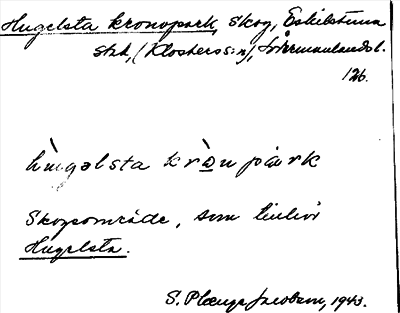 Hugelsta kronopark, skog, Eskilstuna
stad, (Klosters s:n), Södermanlands l.
126.
hùgəlsta krònpàrk
Skogsområde, som tillhör
Hugelsta.
S. Plœnge Jacobson, 1943.